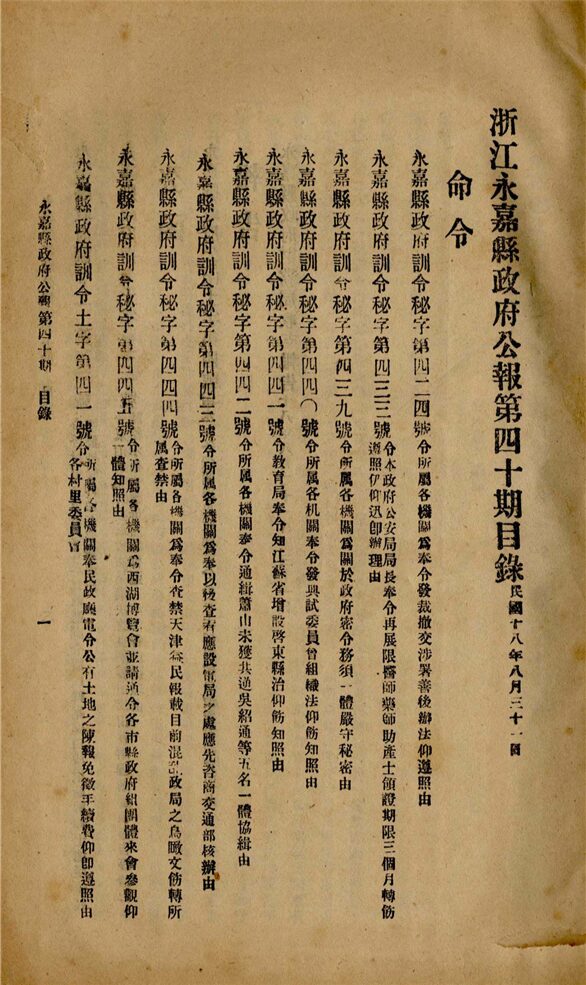 浙江永嘉縣政府公報第四十期目錄 民國十八年八月三十一日
命令
永嘉縣政府訓令秘字第四二四號 令所屬各機關爲奉令發裁撤交涉署善後辦法仰遵照由
永嘉縣政府訓令秘字第四三三號 令本政府公安局局長奉令再展限醫師藥師助產士領證期限三個月轉飭
遵照仰迅卽辦理由
永嘉縣政府訓令秘字第四三九號 令所屬各機關爲關於政府密令務須一體嚴守秘密由
永嘉縣政府訓令秘字第四四〇號 令所屬各机关奉令發典試委員會組織法仰飭知照由
永嘉縣政府訓令秘字第四四一號 令教育局奉令知江蘇省增設啓東縣治仰飭知照由
永嘉縣政府訓令秘字第四四二號 令所屬各機關奉令通緝蕭山未獲共逋吳紹通等五名一體協緝由
永嘉縣政府訓令秘字第四四三號 令所屬各機關爲奉以後查有應設電局之處應先咨商交通部核辦由
永嘉縣政府訓令秘字第四四四號 令所屬各機關爲奉令查禁天津益民報載目前混亂政局之鳥瞰文飭轉所
属查禁由
永嘉縣政府訓令秘字第四四五號 令所屬各機關爲西湖博覽會並請通令各市縣政府組團體來會參觀仰
一體知照由
永嘉縣政府訓令土字第四一號 令所屬各機關奉民政廳電令公有土地之陳報免徵手續費仰卽遵照由
各村里委員會
永嘉縣政府公報第四十期 目錄
一